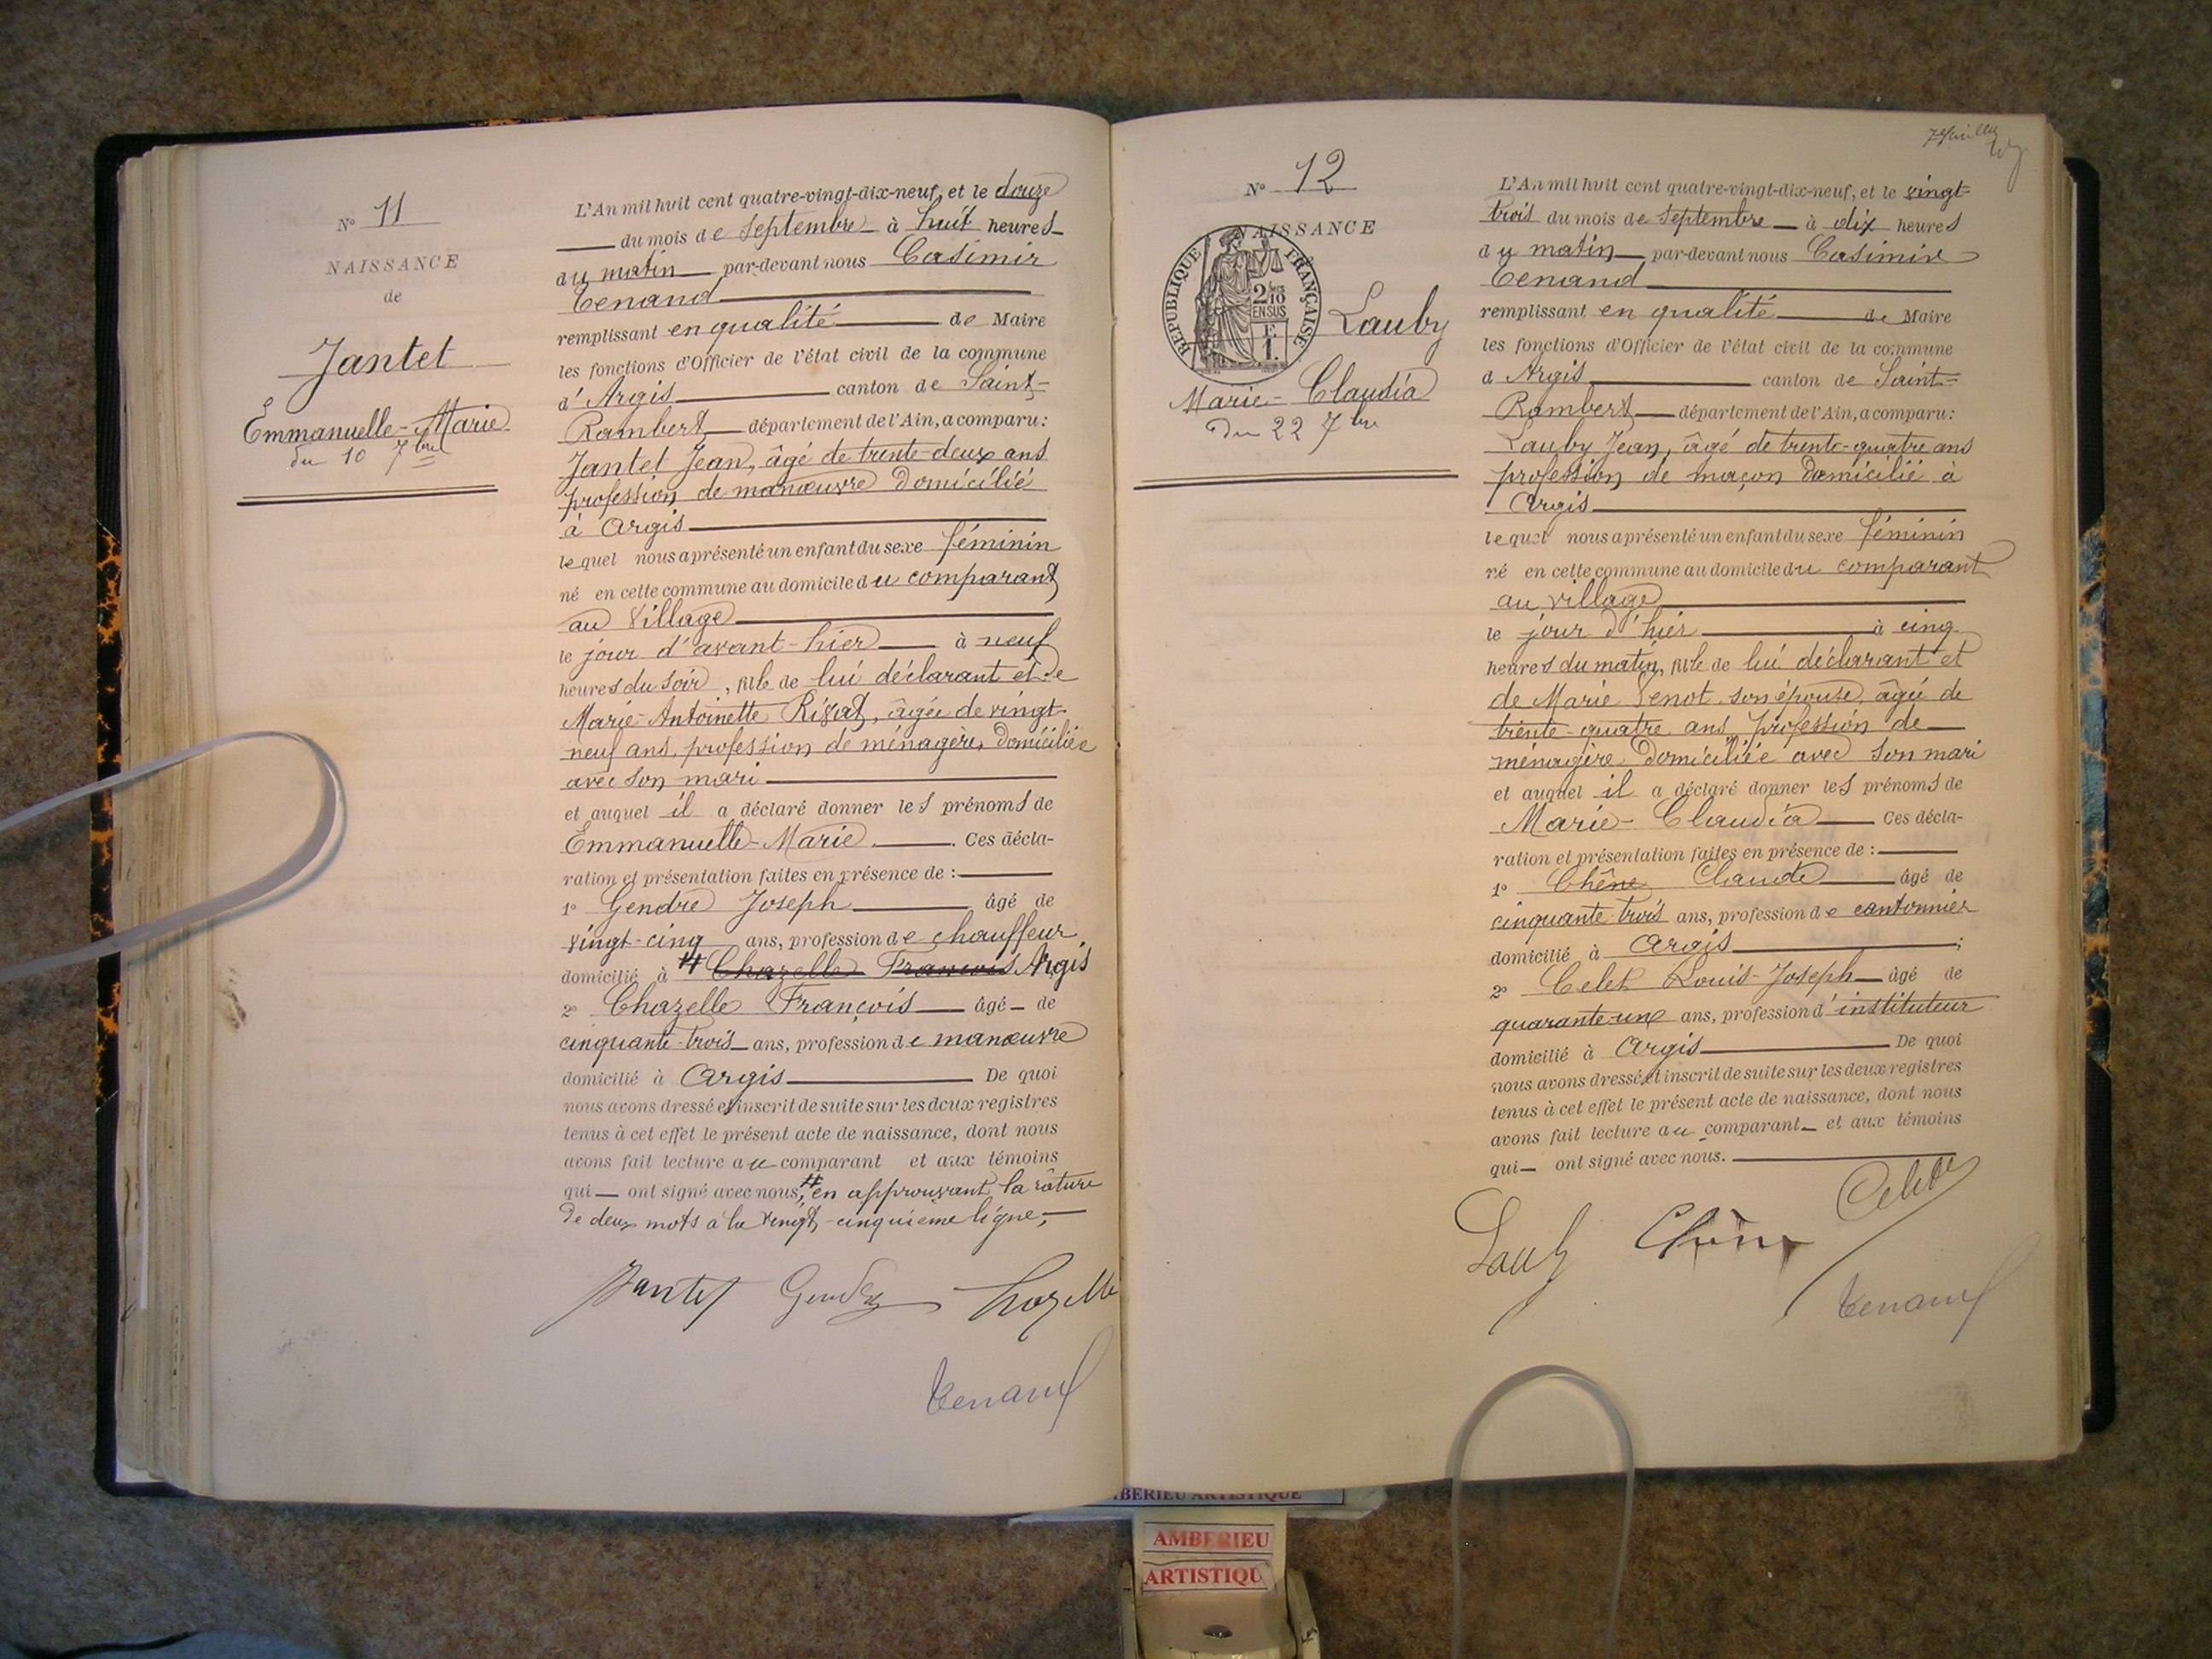 N° 11
NAISSANCE
de
Jantet
Emmanuelle-Marie
du 10 7bre
L'An mil huit cent quatre-vingt-dix-neuf, et le douze
du mois de Septembre à huit heures
du matin par-devant nous Casimir
Tenand
remplissant en qualité de Maire
les fonctions d'Officier de l'état civil de la commune
d'Argis canton de Saint-
Rambert département de l'Ain, a comparu:
Jantet Jean, âgé de trente-deux ans
profession de manœuvre domicilié
à Argis
lequel nous a présenté un enfant du sexe féminin
né en cette commune au domicile du comparant
au village
le jour d'avant-hier à neuf
heures du soir, fille de lui déclarant et de
Marie-Antoinette, âgée de vingt
neuf ans, profession de ménagère, domiciliée
avec son mari
et auquel il a déclaré donner les prénoms de
Emmanuelle-Marie. Ces décla-
ration et présentation faites en présence de:
1° Gendre Joseph âgé de
vingt-cinq ans, profession de chauffeur
domicilié à # Chazelle François Argis
2° Chazelle François âgé de
cinquante-trois ans, profession de manœuvre
domicilié à Argis De quoi
nous avons dressé et inscrit de suite sur les deux registres
tenus à cet effet le présent acte de naissance, dont nous
avons fait lecture au comparant et aux témoins
qui ont signé avec nous, # en approuvant la râture
de deux mots à la vingt-cinquième ligne,
Jantet Gendre Chazelle
Tenand
7e feuillet
N° 12
NAISSANCE
REPUBLIQUE FRANÇAISE
2/10 EN SUS
F.
1.
Lauby
Marie-Claudia
Du 22 7bre
L'An mil huit cent quatre-vingt-dix-neuf, et le vingt-
trois du mois de Septembre à dix heures
du matin par-devant nous Casimir
Tenand
remplissant en qualité de Maire
les fonctions d'Officier de l'état civil de la commune
d'Argis canton de Saint-
Rambert département de l'Ain, a comparu:
Lauby Jean, âgé de trente-quatre ans
profession de maçon domicilié à
Argis
lequel nous a présenté un enfant du sexe féminin
né en cette commune au domicile du comparant
au village
le jour d'hier à cinq
heures du matin, fille de lui déclarant et
de Marie son épouse, âgée de
trente-quatre ans, profession de
ménagère domiciliée avec son mari
et auquel il a déclaré donner les prénoms de
Marie-Claudia Ces décla-
ration et présentation faites en présence de:
1° Chêne Claude âgé de
cinquante-trois ans, profession de cantonnier
domicilié à Argis;
2° Celet Louis-Joseph âgé de
quarante-une ans, profession d'instituteur
domicilié à Argis De quoi
nous avons dressé et inscrit de suite sur les deux registres
tenus à cet effet le présent acte de naissance, dont nous
avons fait lecture au comparant et aux témoins
qui ont signé avec nous.
Lauby Chêne Celet
Tenand
AMBERIEU ARTISTIQUE
AMBERIEU
ARTISTIQU